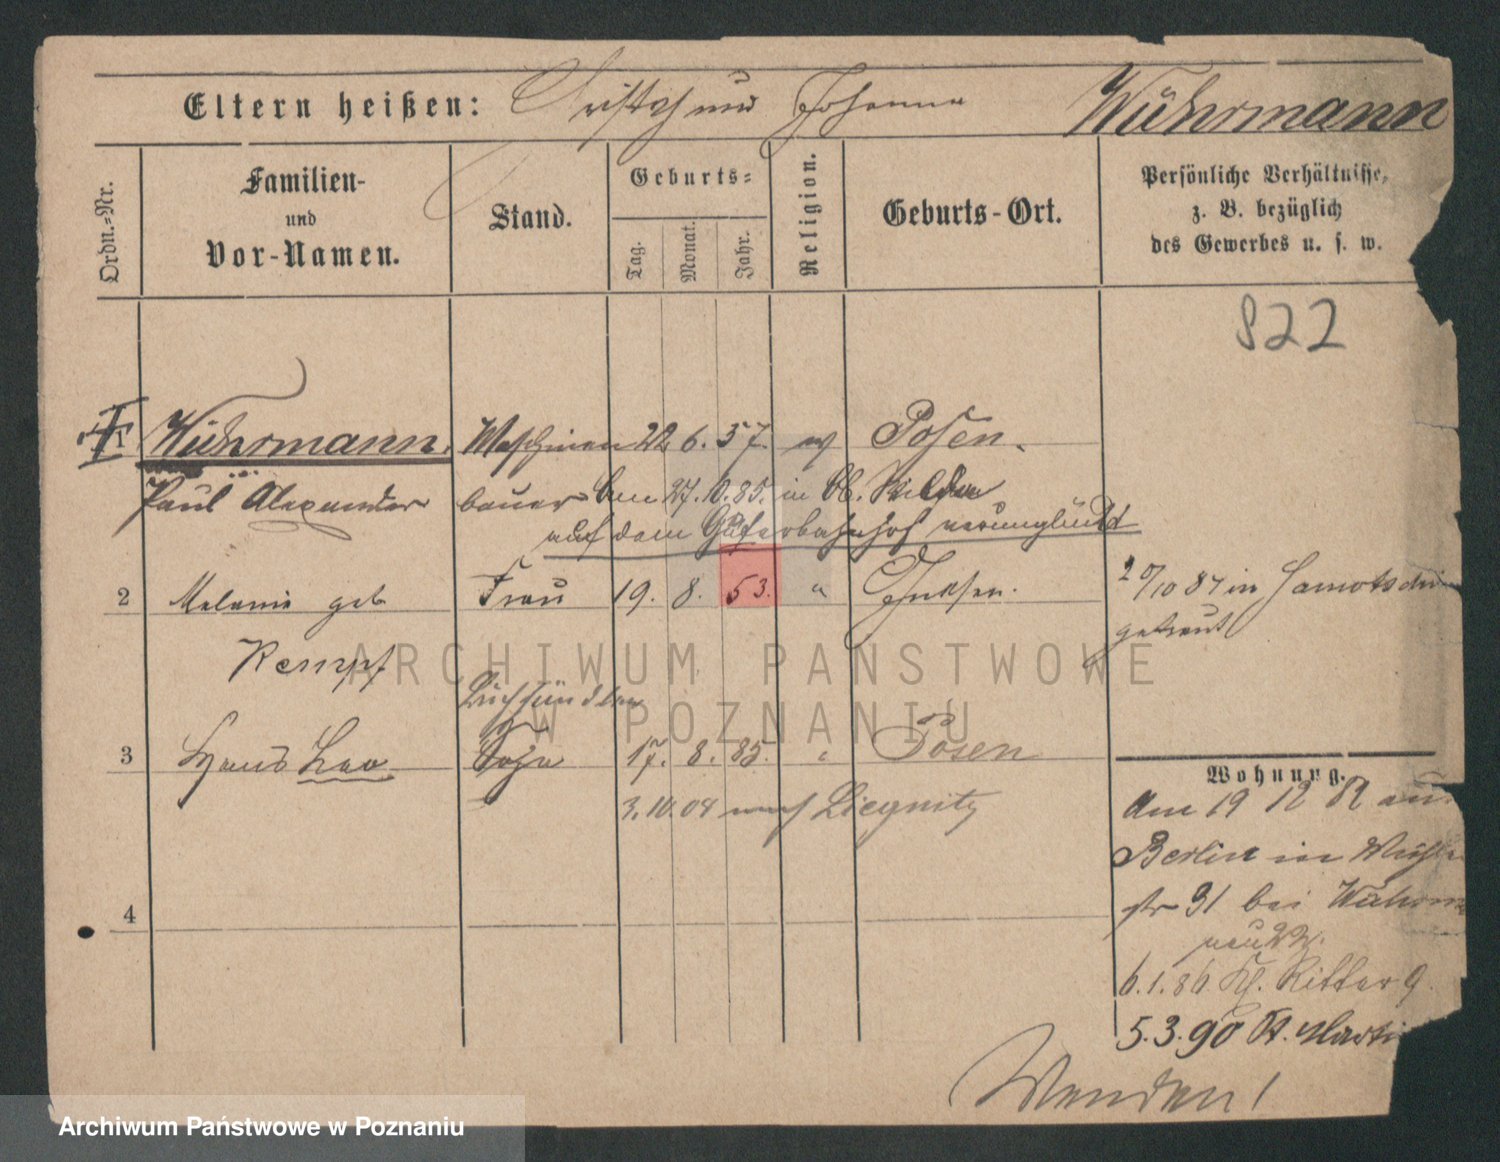 Eltern heißen: Cristoph und Johanna Wührmann
Ordn.-Nr.
Familien-
und
Vor-Namen.
Stand.
Geburts-
Tag.
Monat.
Jahr.
Religion.
Geburts-Ort.
Persönliche Verhältnisse,
z. B. bezüglich
des Gewerbes u. s. w.
822
1 Wührmann. Maschinen 22 6. 57. ev Posen.
Paul Alexander bauer 27. 85. in
auf dem Güterbahnhof verunglückt
2 Melanie geb Frau 19. 8. 53. " 20/10 84 in Samotschin
getraut
Kempf
3 Hans Leo Sohn 17. 8. 85. " Posen
3.10.04 nach Liegnitz
4
Wohnung.
Am 19 12 82 aus
Berlin in
str 31 bei Wührm
neu 22.
6.1.86 Kl. Ritter 9.
5.3.90 St. Marti
Wenden!
ARCHIWUM PAŃSTWOWE
W POZNANIU
Archiwum Państwowe w Poznaniu